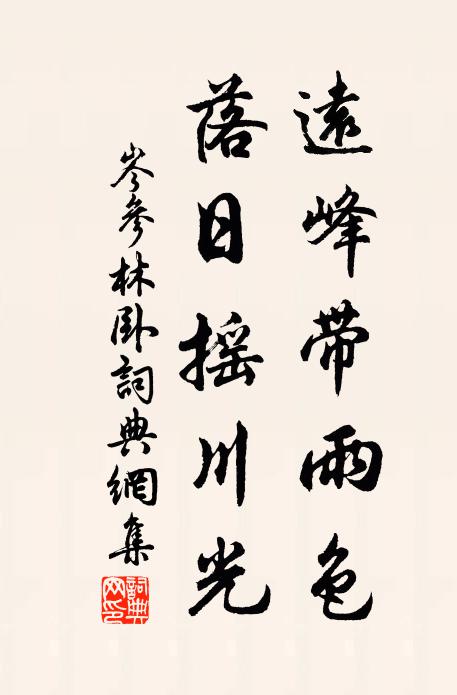 遠峰帶雨色
落日搖川光
岑參林臥詞典網集
詞典網印